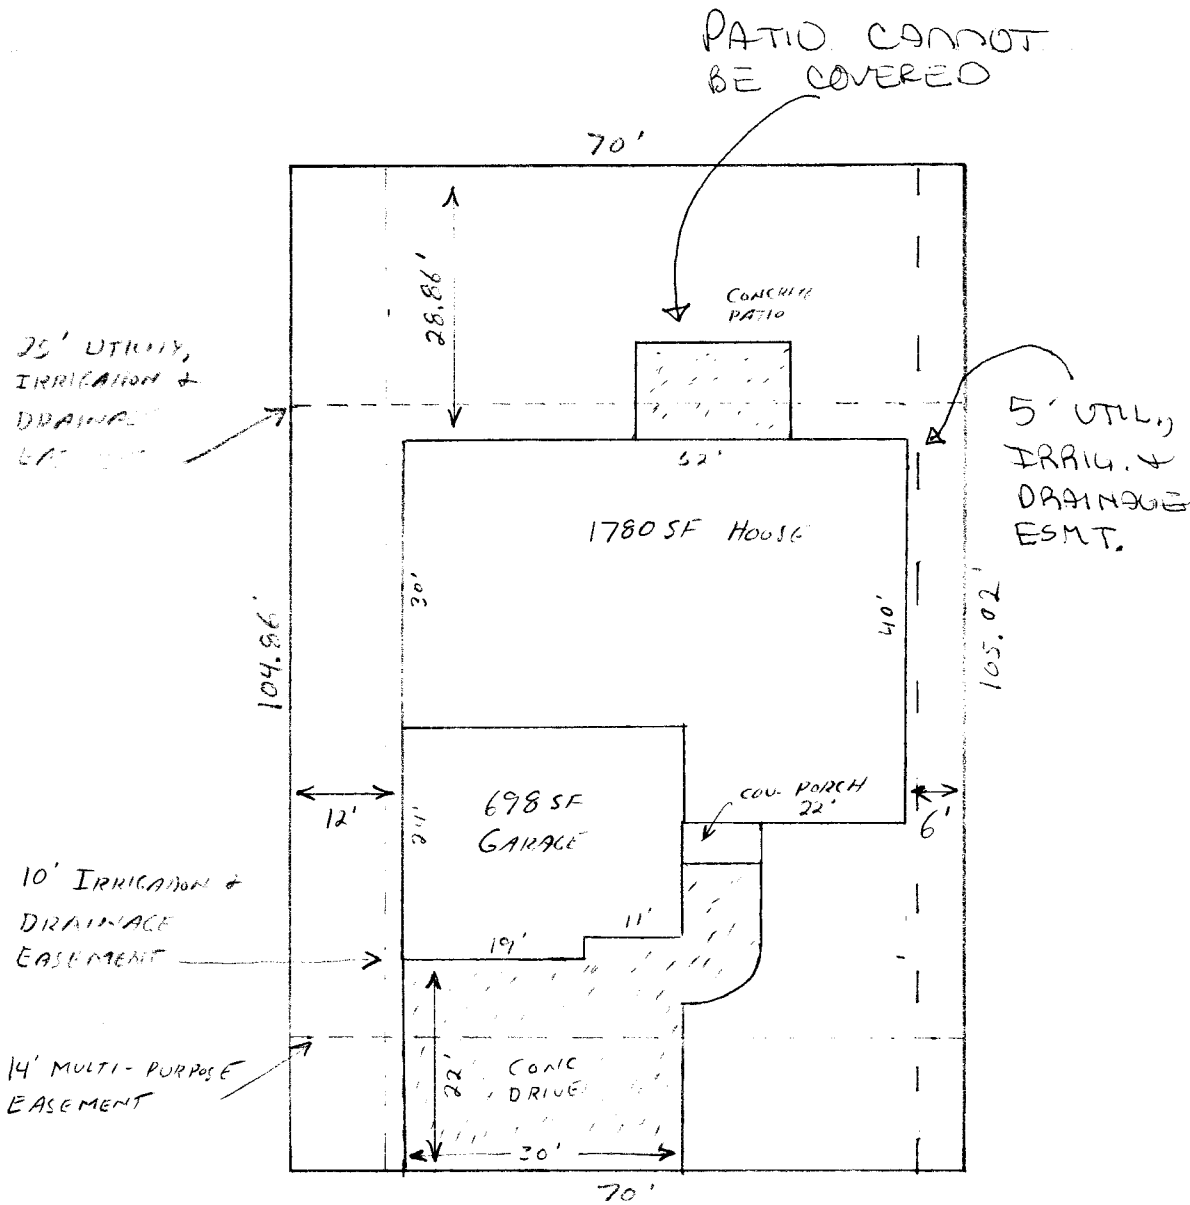 PATIO CANNOT
BE COVERED
70'
28.86'
CONCRETE
PATIO
25' UTILITY,
IRRIGATION &
DRAINAGE
5' UTIL.,
IRRIG. &
DRAINAGE
ESMT.
52'
1780 SF HOUSE
30'
40'
104.86'
105.02'
12'
698 SF
GARAGE
24'
COV. PORCH
22'
6'
10' IRRIGATION &
DRAINAGE
EASEMENT
11'
19'
14' MULTI-PURPOSE
EASEMENT
22'
CONC
DRIVE
30'
70'